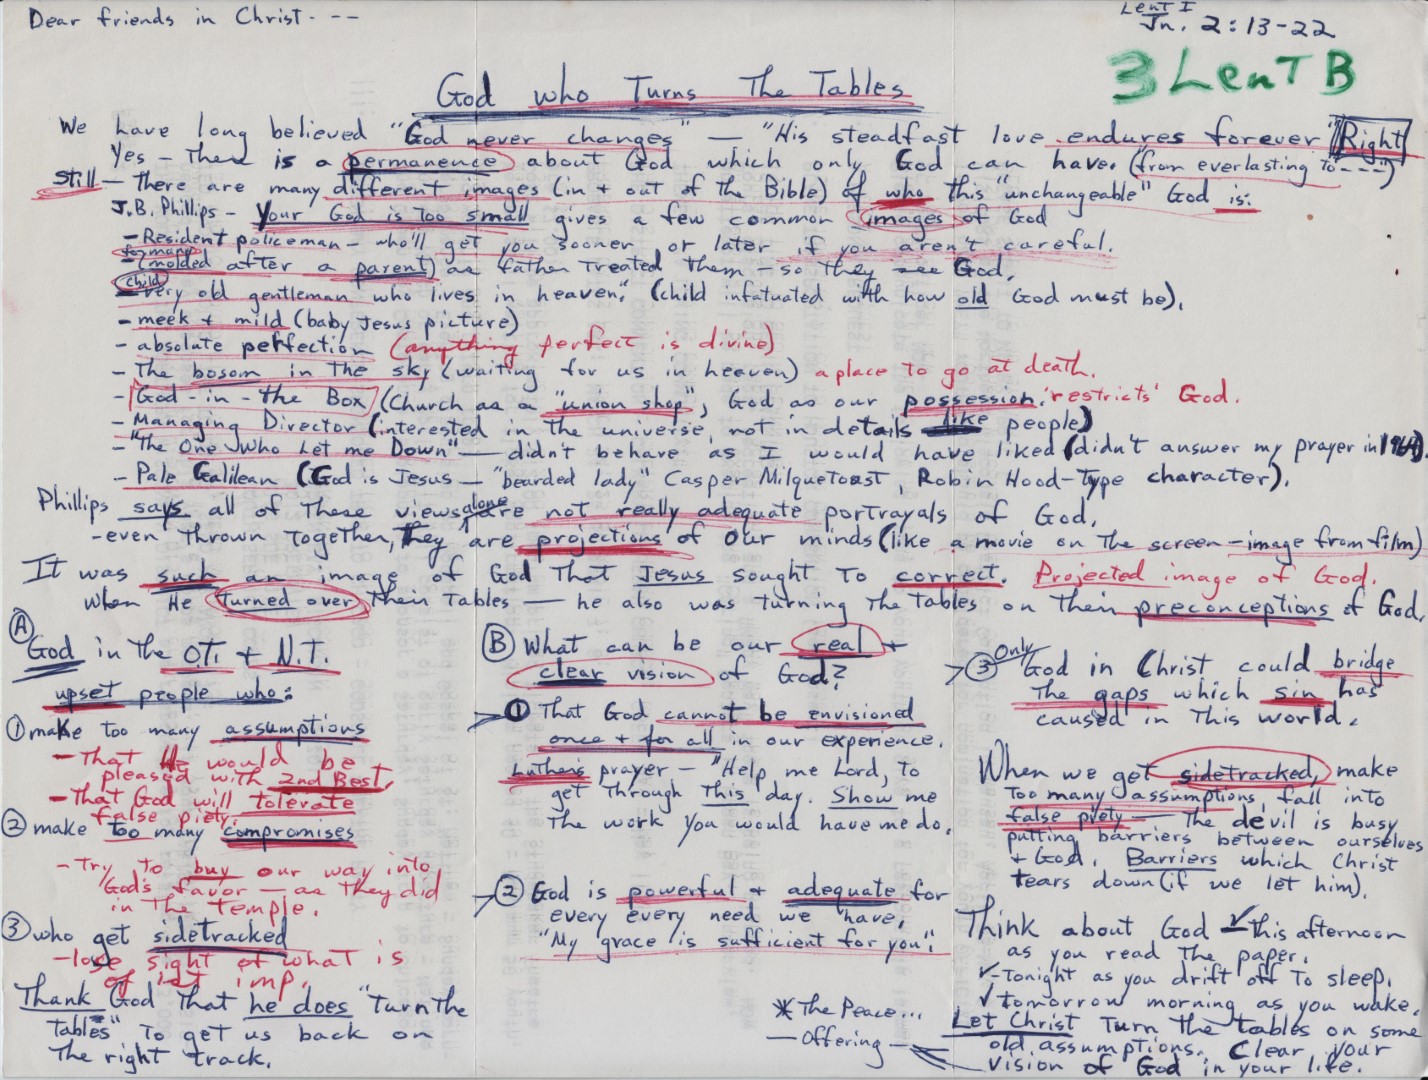 Dear friends in Christ. ---
Lent I
Jn. 2:13-22
3 Lent B
God who Turns The Tables
We have long believed "God never changes" — "His steadfast love endures forever" Right
Yes - There is a permanence about God which only God can have. (from everlasting to----)
still - There are many different images (in + out of the Bible) of who this "unchangeable" God is:
J.B. Phillips - Your God is Too Small gives a few common images of God
- Resident policeman - who'll get you sooner or later if you aren't careful.
- (molded after a parent) as father treated them - so they see God.
child
- very old gentleman who lives in heaven." (child infatuated with how old God must be).
- meek + mild (baby Jesus picture)
- absolute perfection (anything perfect is divine)
- The bosom in the sky (waiting for us in heaven) a place to go at death.
- God-in-the Box (Church as a "union shop", God as our possession. 'restricts' God.
- Managing Director (interested in the universe, not in details like people)
- "The One Who Let me Down" — didn't behave as I would have liked (didn't answer my prayer in 1964).
- Pale Galilean (God is Jesus - "bearded lady" Casper Milquetoast, Robin Hood-Type character).
Phillips says all of these views alone are not really adequate portrayals of God.
- even thrown together, They are projections of our minds (like a movie on the screen - image from film)
It was such an image of God That Jesus sought To correct. Projected image of God.
when He turned over Their Tables — he also was turning The Tables on Their preconceptions of God.
(A) God in the O.T. + N.T.
upset people who:
(1) make too many assumptions
- That He would be
pleased with 2nd Best.
- That God will tolerate
false piety.
(2) make too many compromises
- Try To buy our way into
God's favor — as they did
in The Temple.
(3) who get sidetracked
- lose sight of what is
of 1st imp.
Thank God That he does "Turn the
tables" To get us back on
The right track.
(B) What can be our real +
clear vision of God?
(1) That God cannot be envisioned
once + for all in our experience.
Luther's prayer - "Help me Lord, to
get through this day. Show me
The work you would have me do.
(2) God is powerful + adequate for
every every need we have.
"My grace is sufficient for you".
* The Peace...
— Offering
(3) Only God in Christ could bridge
The gaps which sin has
caused in This world.
When we get sidetracked, make
Too many assumptions, fall into
false piety — The devil is busy
putting barriers between ourselves
+ God. Barriers which Christ
tears down (if we let him).
Think about God ✓ This afternoon
as you read The paper.
✓ - Tonight as you drift off To sleep.
✓ Tomorrow morning as you wake.
Let Christ Turn The tables on some
old assumptions. Clear your
vision of God in your life.